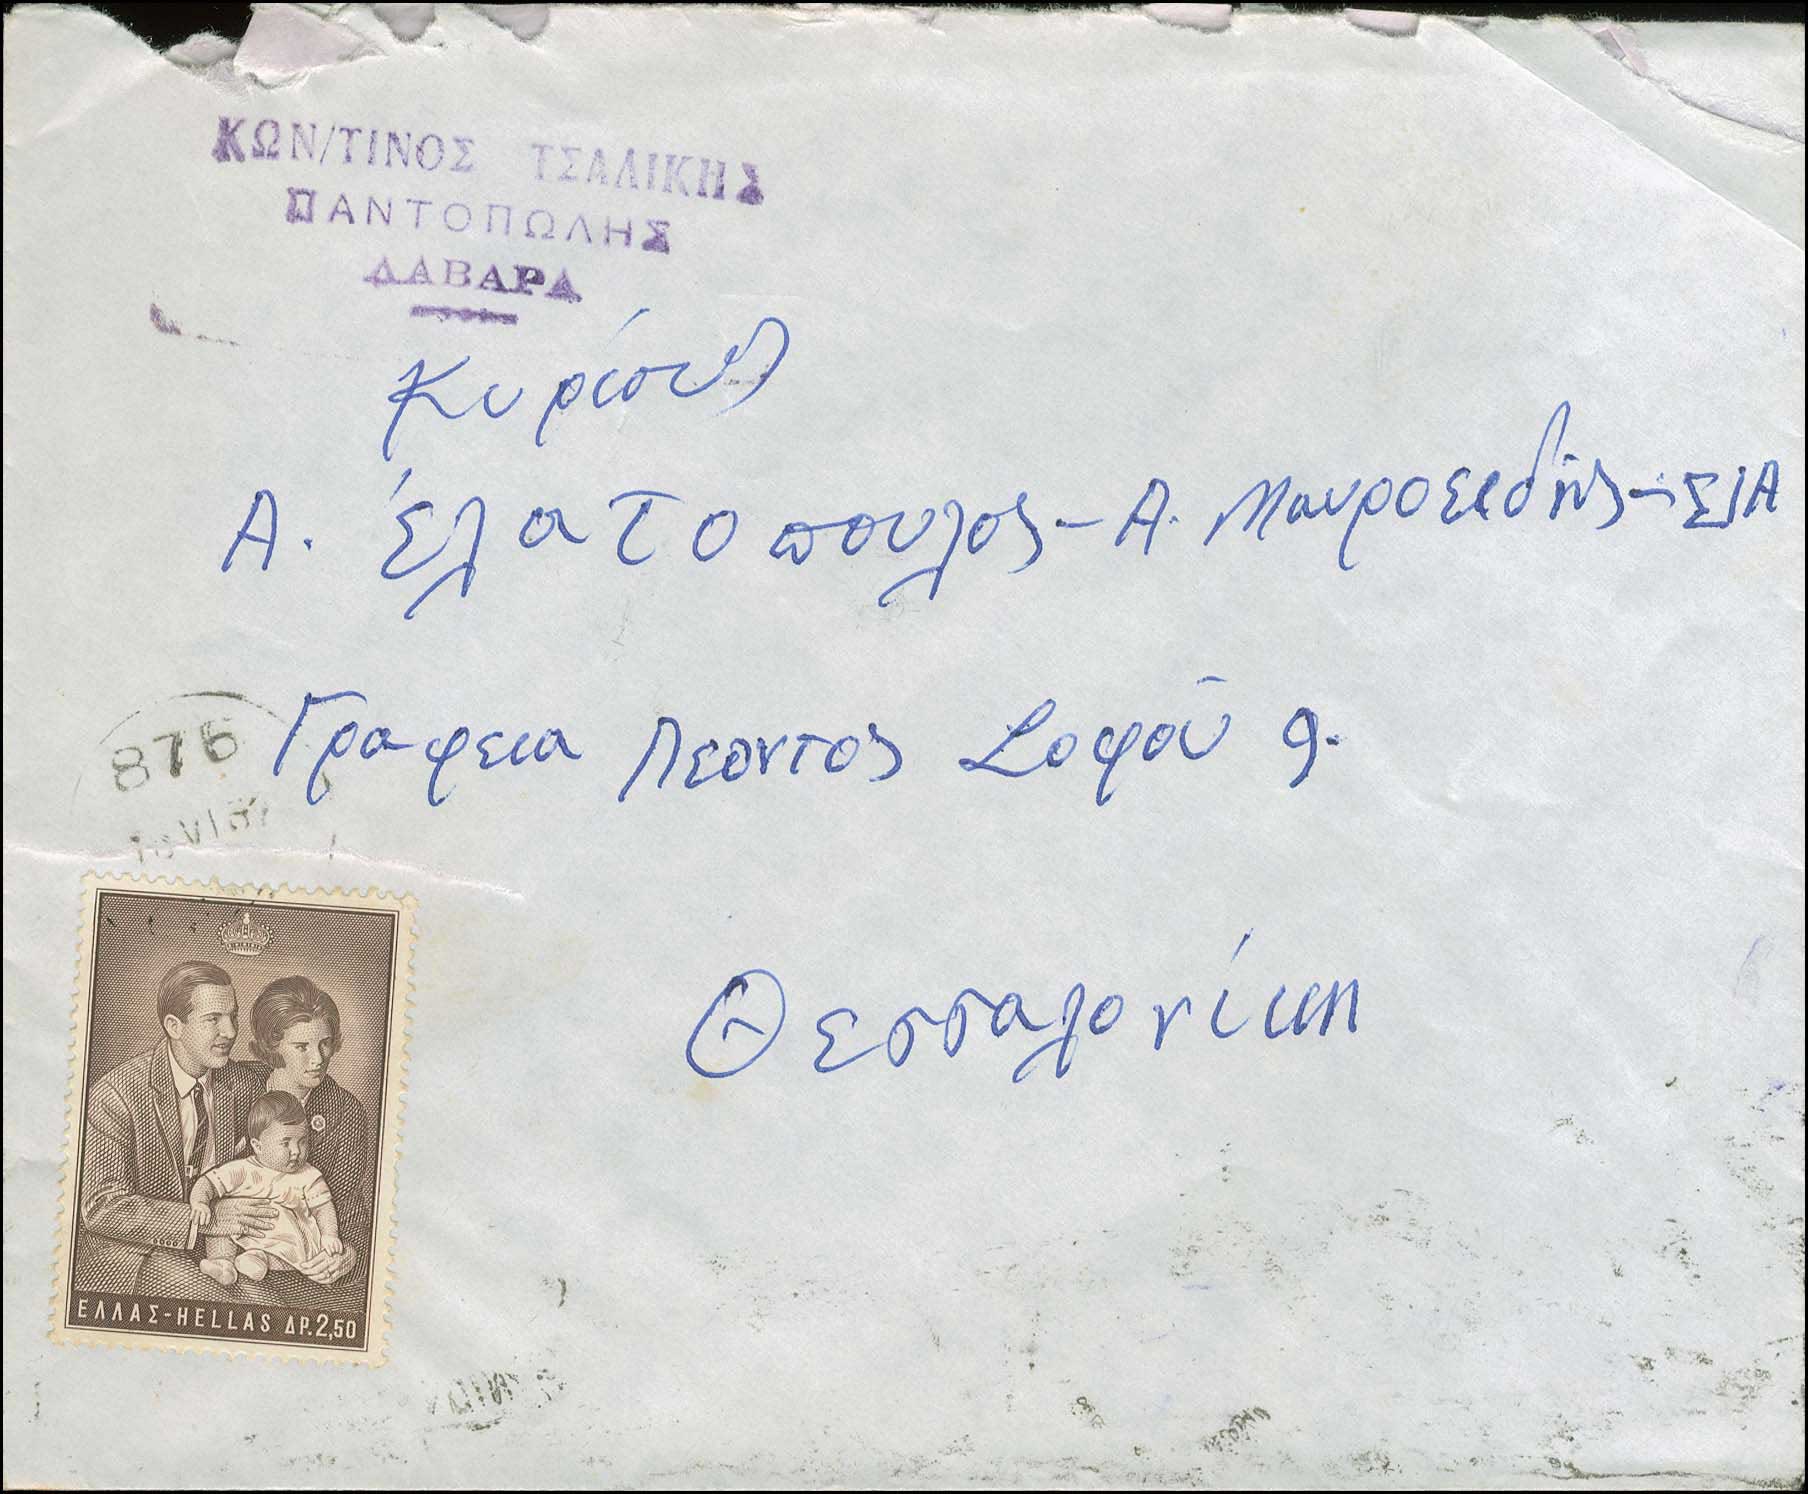 ΚΩΝ/ΤΙΝΟΣ ΤΣΑΛΙΚΗΣ
ΠΑΝΤΟΠΩΛΗΣ
ΔΑΒΑΡΑ
Α. Έλατοπουλος - Α. Μαυροειδής - ΣΙΑ
Γραφεια Λεοντος Σοφού 9.
876
Θεσσαλονίκη
ΕΛΛΑΣ-HELLAS ΔΡ.2,50